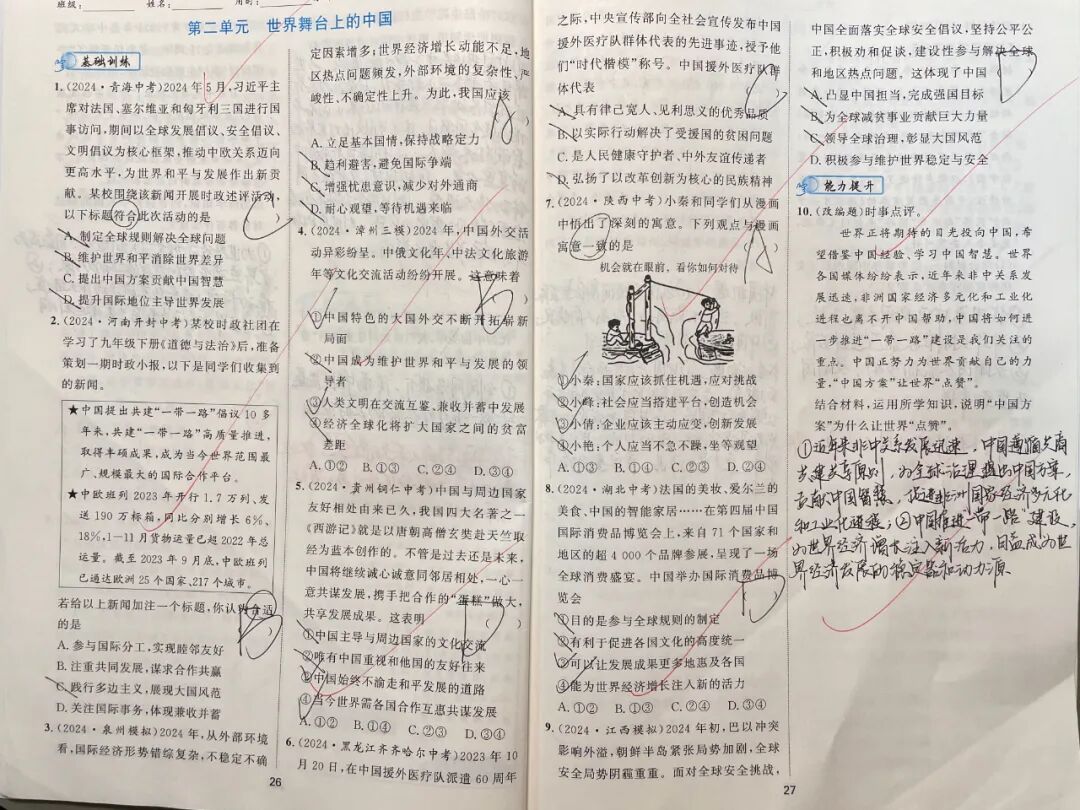 班级： 姓名： 用时：
第二单元 世界舞台上的中国
基础训练
1.(2024·青海中考)2024年5月,习近平主
席对法国、塞尔维亚和匈牙利三国进行国
事访问,期间以全球发展倡议、安全倡议、
文明倡议为核心框架,推动中欧关系迈向
更高水平,为世界和平与发展作出新贡
献。某校围绕该新闻开展时政述评活动,
以下标题符合此次活动的是 ( )
C
A.制定全球规则解决全球问题
B.维护世界和平消除世界差异
C.提出中国方案贡献中国智慧
D.提升国际地位主导世界发展
2.(2024·河南开封中考)某校时政社团在
学习了九年级下册《道德与法治》后,准备
策划一期时政小报,以下是同学们收集到
的新闻。
★中国提出共建“一带一路”倡议10多
年来,共建“一带一路”高质量推进,
取得丰硕成果,成为当今世界范围最
广、规模最大的国际合作平台。
★中欧班列2023年开行1.7万列、发
送190万标箱,同比分别增长6%、
18%,1—11月货物运量已超2022年总
运量。截至2023年9月底,中欧班列
已通达欧洲25个国家、217个城市。
若给以上新闻加注一个标题,你认为合适
的是 ( )
B
A.参与国际分工,实现睦邻友好
B.注重共同发展,谋求合作共赢
C.践行多边主义,展现大国风范
D.关注国际事务,体现兼收并蓄
3.(2024·泉州模拟)2024年,从外部环境
看,国际经济形势错综复杂,不稳定不确
定因素增多;世界经济增长动能不足,地
区热点问题频发,外部环境的复杂性、严
峻性、不确定性上升。为此,我国应该
( )
A
A.立足基本国情,保持战略定力
B.趋利避害,避免国际争端
C.增强忧患意识,减少对外通商
D.耐心观望,等待机遇来临
4.(2024·漳州三模)2024年,中国外交活
动异彩纷呈。中俄文化年、中法文化旅游
年等文化交流活动纷纷开展。这意味着
( )
B
①中国特色的大国外交不断开拓崭新
局面
②中国成为维护世界和平与发展的领
导者
③人类文明在交流互鉴、兼收并蓄中发展
④经济全球化将扩大国家之间的贫富
差距
A.①② B.①③ C.②④ D.③④
5.(2024·贵州铜仁中考)中国与周边国家
友好相处由来已久,我国四大名著之一
《西游记》就是以唐朝高僧玄奘赴天竺取
经为蓝本创作的。不管是过去还是未来,
中国将继续诚心诚意同邻居相处,一心一
意共谋发展,携手把合作的“蛋糕”做大,
共享发展成果。这表明 ( )
D
①中国主导与周边国家的文化交流
②唯有中国重视和他国的友好往来
③中国始终不渝走和平发展的道路
④当今世界需各国合作互惠共谋发展
A.①② B.①④ C.②③ D.③④
6.(2024·黑龙江齐齐哈尔中考)2023年10
月20日,在中国援外医疗队派遣60周年
26
之际,中央宣传部向全社会宣传发布中国
援外医疗队群体代表的先进事迹,授予他
们“时代楷模”称号。中国援外医疗队群
体代表 ( )
C
A.具有律己宽人、见利思义的优秀品质
B.以实际行动解决了受援国的贫困问题
C.是人民健康守护者、中外友谊传递者
D.弘扬了以改革创新为核心的民族精神
7.(2024·陕西中考)小秦和同学们从漫画
中悟出了深刻的寓意。下列观点与漫画
寓意一致的是 ( )
A
机会就在眼前,看你如何对待
①小秦:国家应该抓住机遇,应对挑战
②小峰:社会应当搭建平台,创造机会
③小倩:企业应该主动应变,创新发展
④小艳:个人应当不急不躁,坐等观望
A.①③ B.①④ C.②③ D.②④
8.(2024·湖北中考)法国的美妆、爱尔兰的
美食、中国的智能家居……在第四届中国
国际消费品博览会上,来自71个国家和
地区的超4 000个品牌参展,呈现了一场
全球消费盛宴。中国举办国际消费品博
览会 ( )
D
①目的是参与全球规则的制定
②有利于促进各国文化的高度统一
③可以让发展成果更多地惠及各国
④能为世界经济增长注入新的活力
A.①② B.①④ C.②③ D.③④
9.(2024·江西模拟)2024年初,巴以冲突
影响外溢,朝鲜半岛紧张局势加剧,全球
安全局势阴霾重重。面对全球安全挑战,
27
中国全面落实全球安全倡议,坚持公平公
正,积极劝和促谈,建设性参与解决全球
和地区热点问题。这体现了中国 ( )
D
A.凸显中国担当,完成强国目标
B.为全球减贫事业贡献巨大力量
C.领导全球治理,彰显大国风范
D.积极参与维护世界稳定与安全
能力提升
10.(改编题)时事点评。
世界正将期待的目光投向中国,希
望借鉴中国经验、学习中国智慧。世界
各国媒体纷纷表示,近年来非中关系发
展迅速,非洲国家经济多元化和工业化
进程也离不开中国帮助,中国将如何进
一步推进“一带一路”建设是我们关注的
重点。中国正努力为世界贡献自己的力
量,“中国方案”让世界“点赞”。
结合材料,运用所学知识,说明“中国方
案”为什么让世界“点赞”。
①近年来非中关系发展迅速，中国遵循共商
共建共享原则，为全球治理提出中国方案，
贡献中国智慧，促进非洲国家经济多元化
和工业化进程；②中国推进“一带一路”建设，
为世界经济增长注入新活力，日益成为世
界经济发展的稳定器和动力源